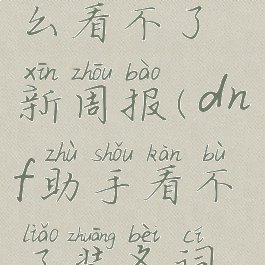 么看不了
xīn zhōu bào
新周报(dn
zhù shǒu kàn bù
f助手看不
liǎo zhuāng bèi cí
了装备词